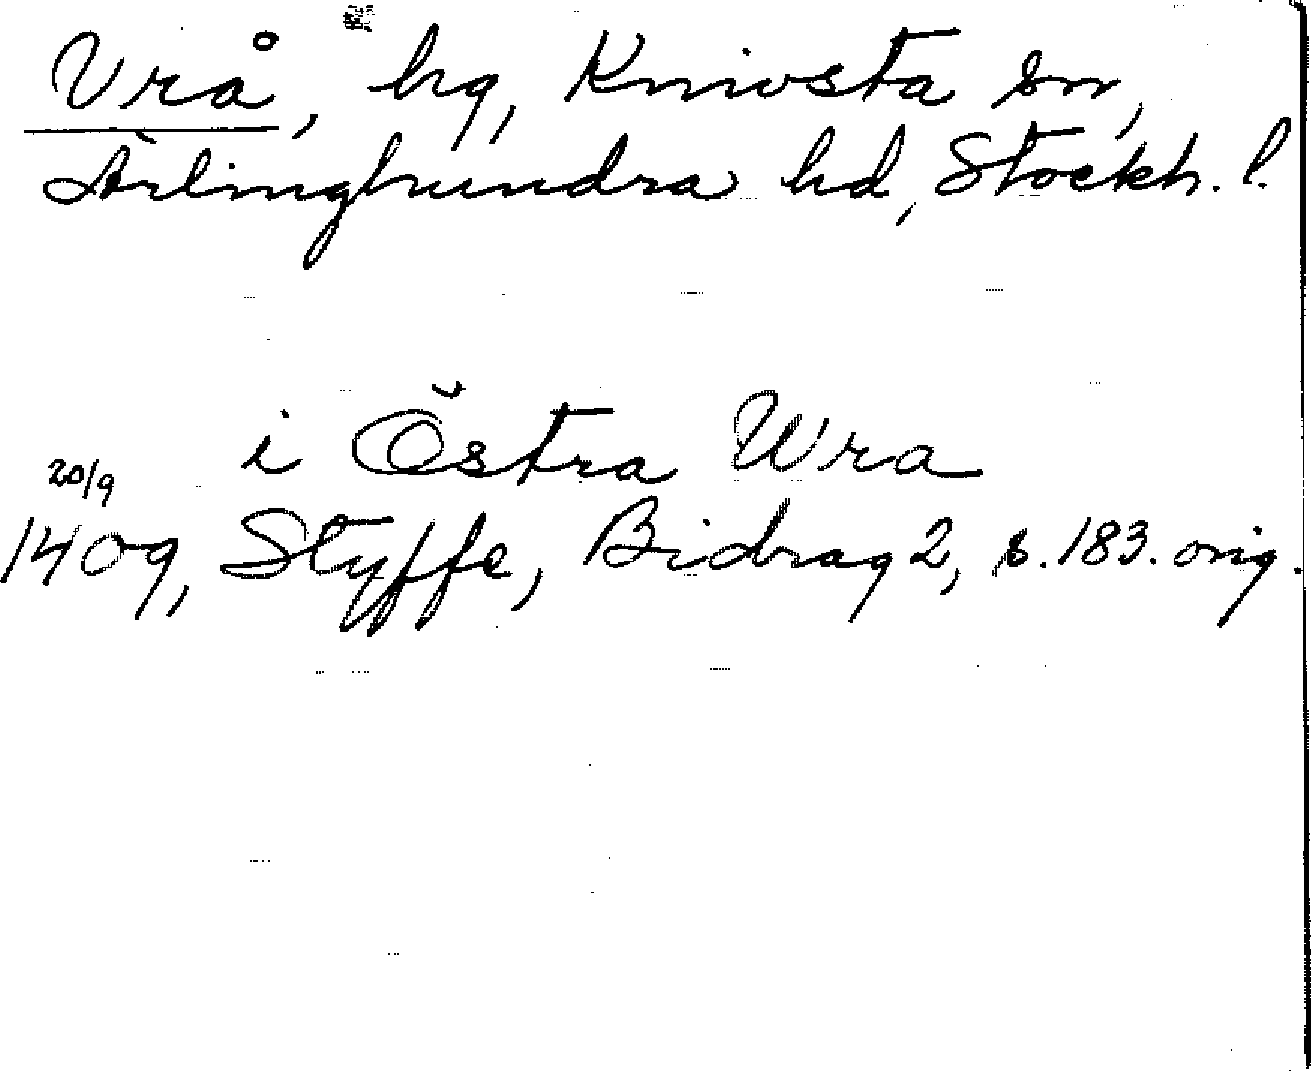 Vrå, hg, Knivsta sn,
Ärlinghundra hd, Stockh. l.
i Östra Wra
20/9
1409, Styffe, Bidrag 2, s. 183. orig.